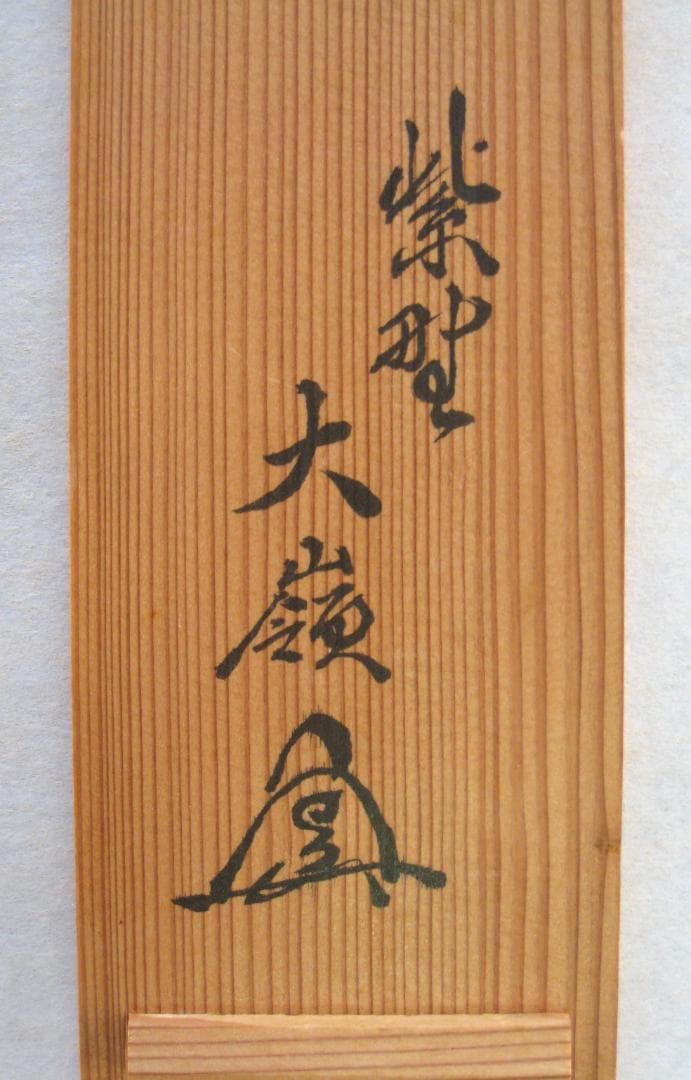 紫野
大嶺